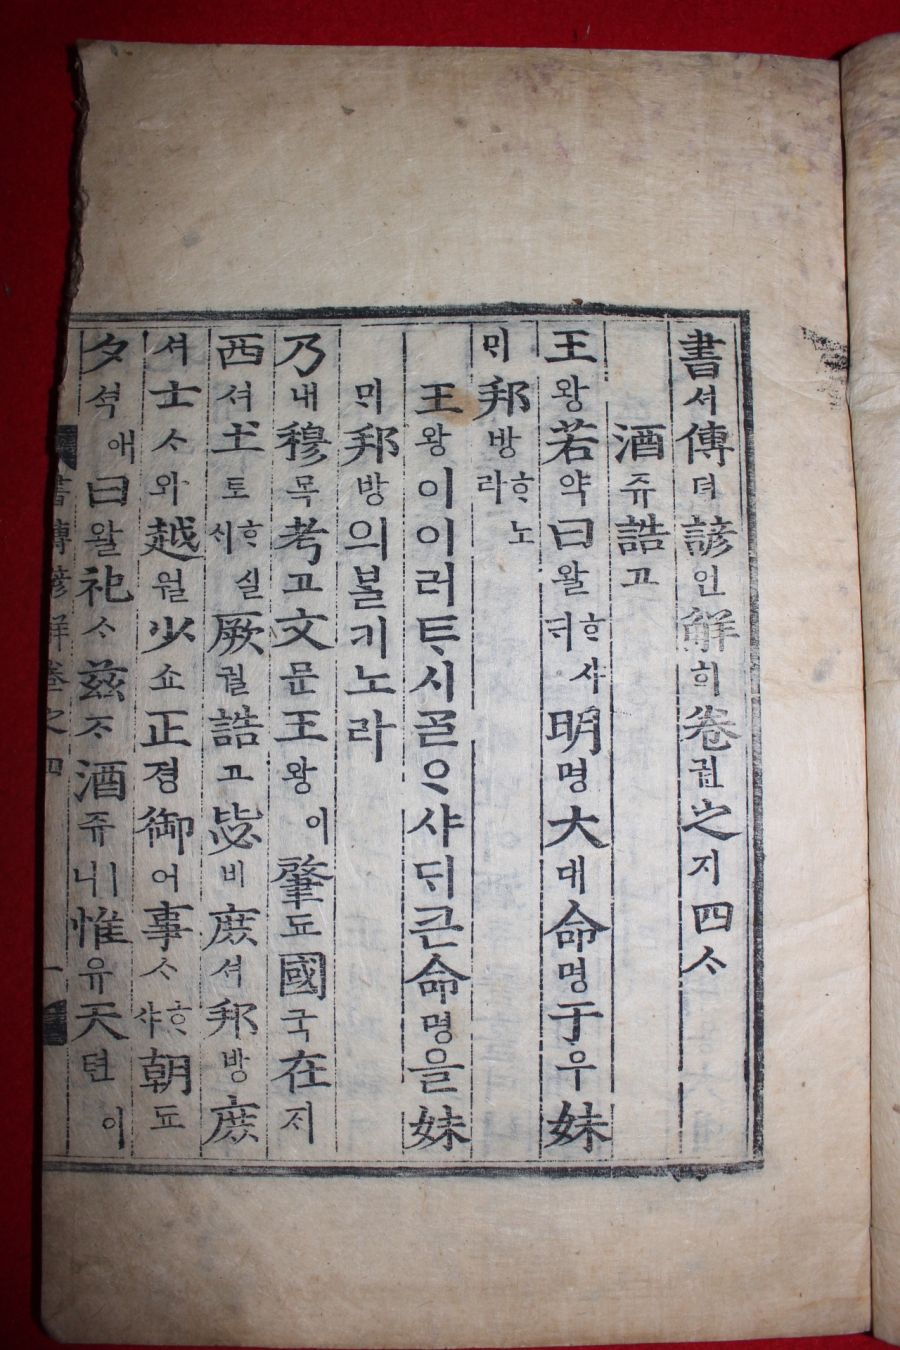 書셔傳뎐諺언解ᄒᆡ卷권之지四ᄉᆞ
酒쥬誥고
王왕若약曰왈ᄒᆞ샤ᄃᆡ明명大대命명于우妹
ᄆᆡ邦방ᄒᆞ노라
王왕이이러ᄐᆞ시ᄀᆞᆯᄋᆞ샤ᄃᆡ큰命명을妹
ᄆᆡ邦방의ᄇᆞᆯ키노라
乃내穆목考고文문王왕이肇됴國국在ᄌᆡ
西셔土토ᄒᆞ실ᄉᆡ厥궐誥고毖비庶셔邦방庶
셔士ᄉᆞ와越월少쇼正졍御어事ᄉᆞᄒᆞ샤朝됴
夕셕애曰왈祀ᄉᆞ玆ᄌᆞ酒쥬ㅣ니惟유天텬이
書傳諺解卷之四 一